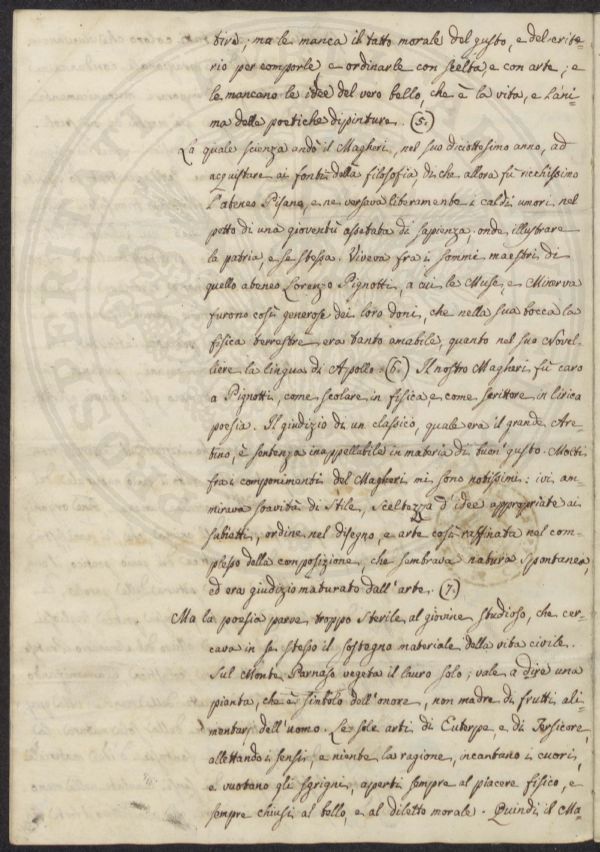 tire; ma le manca il tatto morale del gusto, e del crite-
rio per comporle e ordinarle con scelta, e con arte; e
le mancano le idee del vero bello, che è la vita, e l'ani-
ma delle poetiche dipinture. (5.)
La quale scienza andò il Magheri, nel suo diciottesimo anno, ad
acquistare ai fonti della filosofia, di che allora fù ricchissimo
l'ateneo Pisano, e ne versava liberamente i caldi umori nel
petto di una gioventù assetata di sapienza, onde illustrare
la patria, e se stessa. Viveva fra i sommi maestri di
quello ateneo Lorenzo Pignotti, a cui le Muse, e Minerva
furono così generose dei loro doni, che nella sua bocca la
fisica terrestre era tanto amabile, quanto nel suo Novel-
liere la lingua di Apollo. (6.) Il nostro Magheri fù caro
a Pignotti, come scolare in fisica e come scrittore in lirica
poesia. Il giudizio di un classico, quale era il grande Are-
tino, è sentenza inappellabile in materia di buon' gusto. Molti
fra i componimenti del Magheri mi sono notissimi: ivi am-
mirava soavità di stile, sceltezza d'idee appropriate ai
subietti, ordine nel disegno, e arte così raffinata nel com-
plesso della composizione, che sembrava natura spontanea,
ed era giudizio maturato dall'arte. (7.)
Ma la poesia parve troppo sterile al giovine studioso, che cer-
cava in se stesso il sostegno materiale della vita civile.
Sul Monte Parnaso vegeta il lauro solo; vale a dire una
pianta, che è simbolo dell'onore, non madre di frutti ali-
mentari dell'uomo. Le sole arti di Euterpe e di Tersicore,
allettando i sensi, e niente la ragione, incantano i cuori,
e vuotano gli scrigni, aperti sempre al piacere fisico, e
sempre chiusi al bello, e al diletto morale. Quindi il Ma-